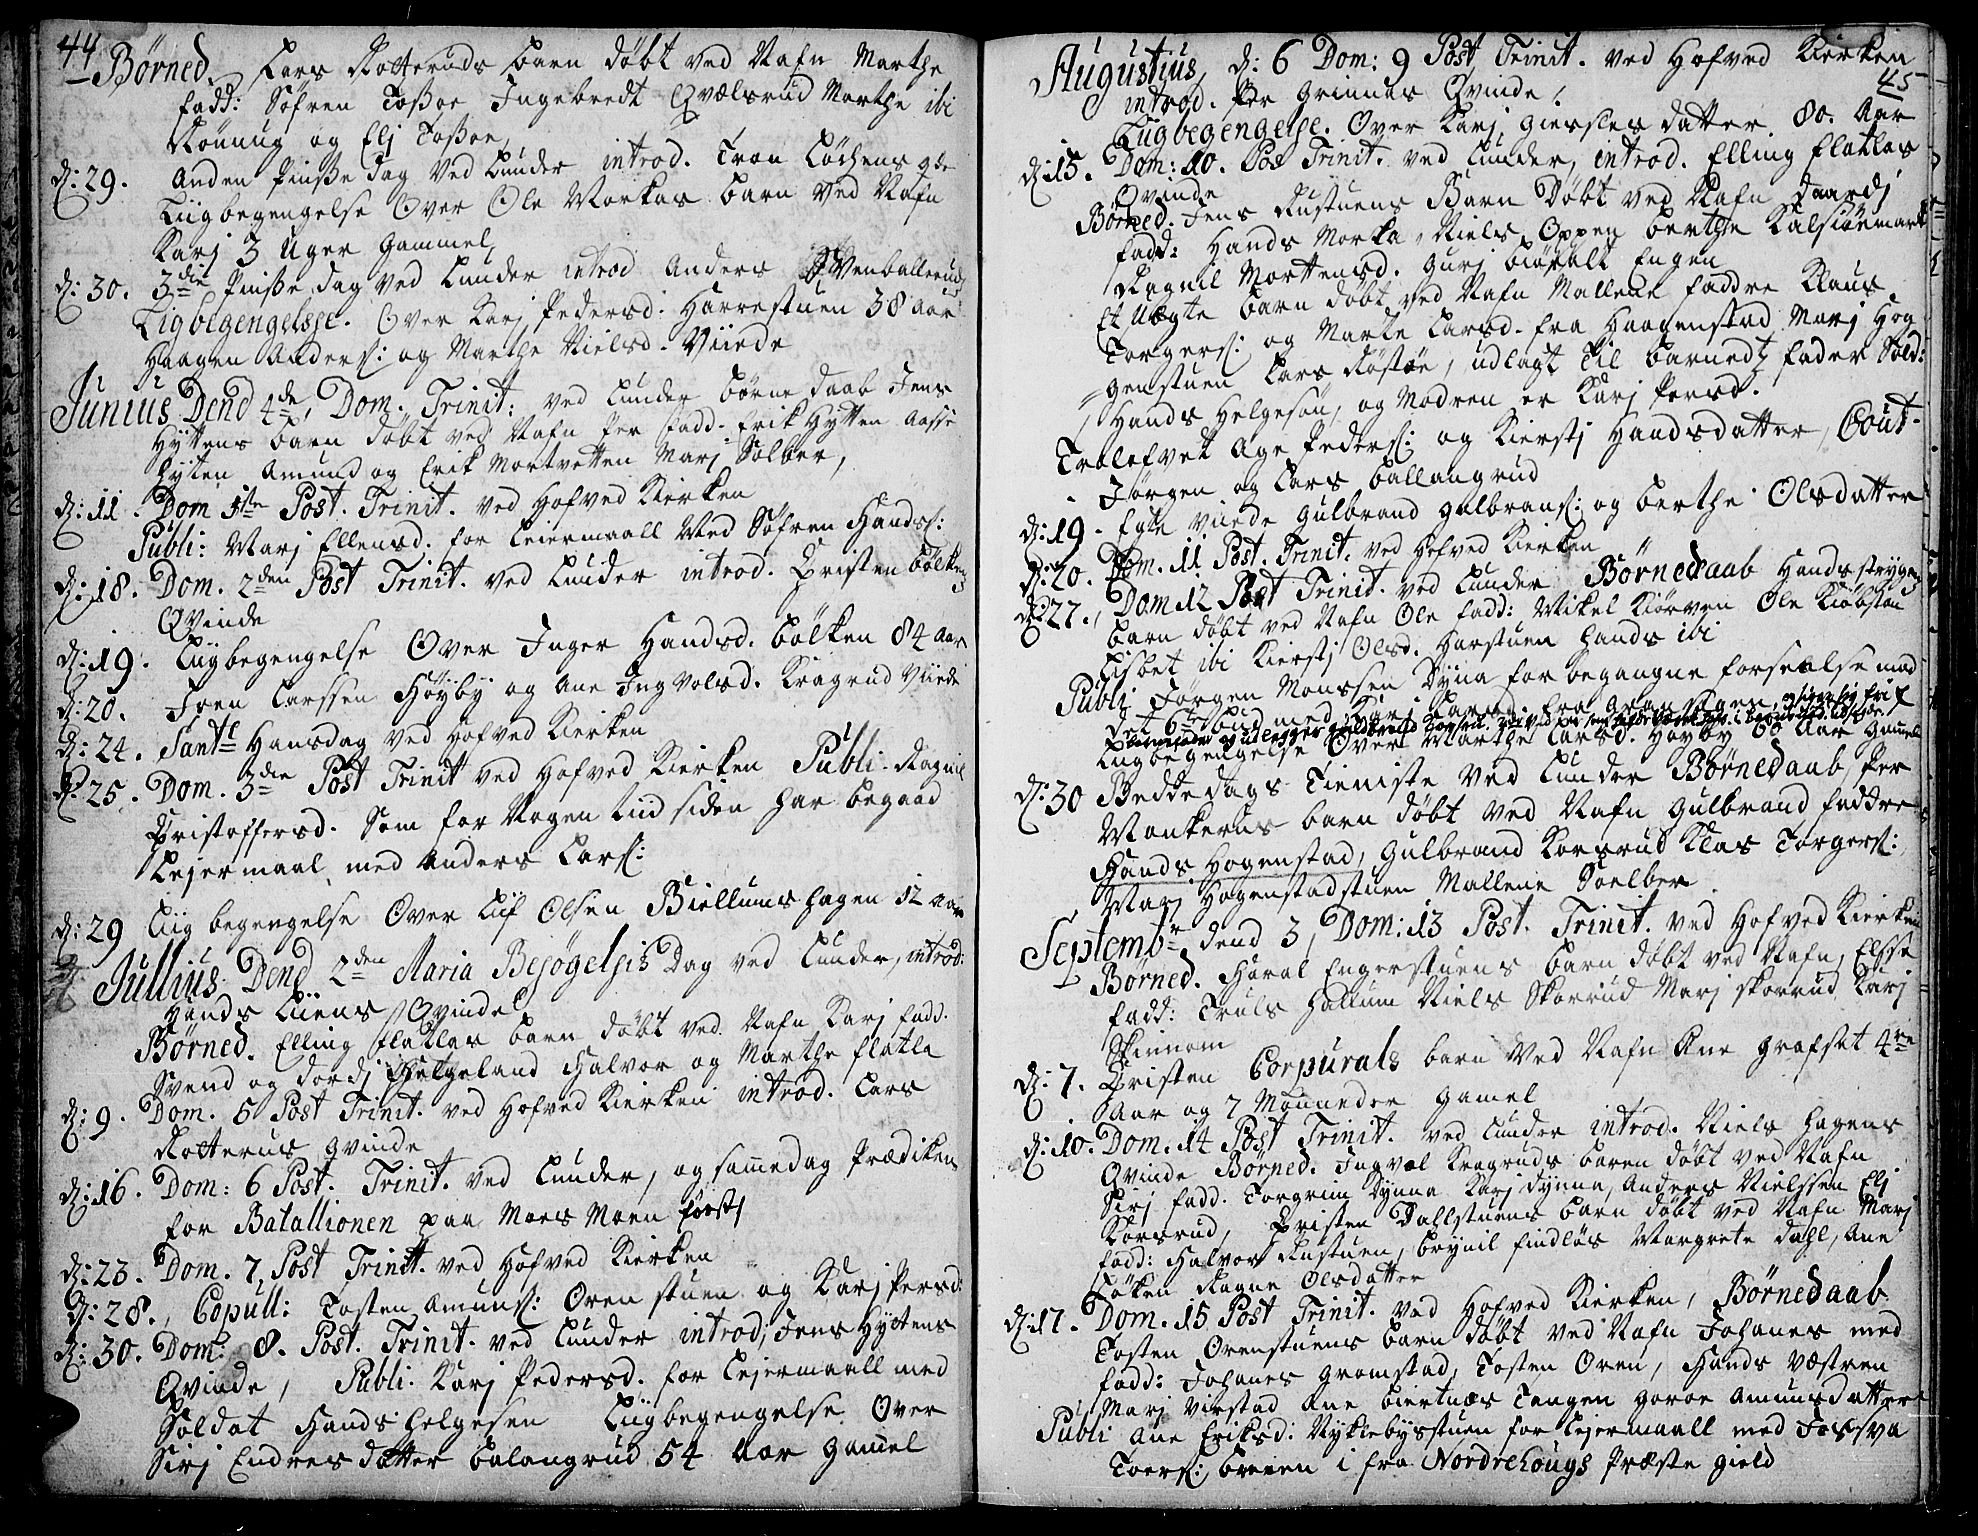 44
Börned. Lars Rotteruds barn döbt ved Nafn Marthe
fadd: Söfren Toßoe Ingebredt Qvælsrud Marthe ibi
Rönnug og Elj Toßoe
d: 29. Anden Pinße dag Ved Lunder introd. Tron Löchens qv
Liigbegengelse Over Ole Morkas barn ved Nafn
Karj 3 Uger gammel
d: 30. 3die Pinße dag ved Lunder introd Anders Svenballerud
Ligbegengelsse. Over Karj Pedersd: Harrestuen 38 aar
Haagen Anders: og Marthe Nielsd. Viiede
Junius Dend 4de, Dom. Trinit: ved Lunder börne daab Jens
Hyttens barn döbt ved Nafn Per fadd. Erik Hytten Aasse
Hyten Amund og Erik Mortvetten Marj Solber,
d: 11. Dom 1ste Post. Trinit. ved Hofved Kierken
Publi: Marj Ellensd. for Leiermaall Med Söfren Hands:
d: 18. Dom. 2den Post Trinit. ved Lunder introd. Christen bölkens
Qvinde
d: 19. Liigbegengelse Over Inger Handsd. bölken 84 Aar
d: 20. Joen Larssen Höyby og Ane Ingvolsd. Kragrud Viiede
d: 24. Sante Hansdag ved Hofved Kierken
d: 25. Dom. 3die Post Trinit ved Hofved Kierken Publi. Ragnil
Christoffersd. Som for Nogen tiid siden har begaad
Lejermaal, med Anders Lars:
d: 29 Liig begengelse Over Lif Olsen Biellums hagen 12 aar
Jullius Dend 2den Maria Besögelsis Dag ved Lunder, introd:
Hands Liiens Qvinde
Börned. Elling flatlas barn döbt ved Nafn Karj fadd.
Svend og dordj Helgeland Halvor og Marthe flatla
d: 9. Dom. 5 Post Trinit. ved Hofved Kierken introd. Lars
Rotterus qvinde
d: 16. Dom: 6 Post. Trinit. ved Lunder, og samedag Prædiken
for Batallionen paa Moes Moen först
d: 23. Dom. 7 Post Trinit. ved Hofved Kierken
d: 28., Copull: Tosten Amuns: Oren stuen og Karj Persd:
d: 30. Dom: 8. Post. Trinit. ved Lunder introd, Jens Hyttens
Qvinde, Publi. Karj Pedersd. for Lejermaall med
Soldat Hands Helgesen Liigbegengelse Over
Sirj Endresdatter balangrud 54 Aar gamel
45
Augustius, d: 6 Dom: 9 Post Trinit. ved Hofved Kierken
introd. Per Grinnas Qvinde.
Liigbegengelse. Over Karj datter 80. Aar
d: 15. Dom: 10. Pos Trinit. ved Lunder, introd. Elling flatlas
Qvinde
Börned. Jens Rustuens Barn Döbt ved Nafn daardj
fadd: Hands Morka, Niels Oppen berthe
Ragnil Mortensd. Gurj Engen
Et Uægte barn döbt ved Nafn Mallene faddre Klaus
Torgers: og Marte Larsd. fra Haagenstad Marj Hog
=genstuen Lars Röstöe, udlagt til barnedtz fader Sold:
Hands Helgesøn, og Modren er Karj Persd.
Trolefvet Age Peders: og Kierstj Handsdatter, Cout.
Jörgen og Lars ballangrud
d: 19. Egte Viiede Gulbrand Gulbrans: og berthe Olsdatter
d: 20. Dom. 11 Post. Trinit. ved Hofved Kierken
d: 27., Dom 12 Post Trinit. ved Lunder Börnedaab Hands strygens
barn döbt ved Nafn Ole fadd: Mikel Kiörven Ole
Lisbet ibi Kierstj Olsd. Harstuen Hands ibi
Publi Jörgen Monssen Dyna for begangne forseelse mod
det 6te bud med Karj Larsd. fra
Liigbegengelse Over Marthe Larsd. Höyby 60 Aar Gamel
d: 30 Beddedags Tieniste Ved Lunder Börnedaab, Per
Monkerus barn döbt ved Nafn Gulbrand faddre
Hands Hogenstad, Gulbrand Korsrud Klas Torgers:
Marj Hogenstadstuen Mallene Soelber
Septembr, dend 3, Dom: 13 Post. Trinit. ved Hofved Kierken
Börned. Haral Engerstuens barn döbt ved Nafn, Elsse
fadd: Truls Hallum Niels Skorrud Marj skorrud Karj
Skinnom
d: 7. Christen Corpurals barn Ved Nafn Ane grafset 4re
Aar og 7 Maaneder gamel
d: 10. Dom. 14 Post Trinit. ved Lunder introd. Niels Hagens
Qvinde Börned. Ingvol Kragruds baren döbt ved Nafn
Sirj fadd. Torgrim Dynna Karj dynna, Anders Nielssen Elj
Korsrud, Christen Dahlstuens barn döbt ved Nafn Marj
fadd: Halvor Rustuen, brynil findlös Margrete Dahl, Ane
Löken Ragne Olsdatter
d: 17. Dom. 15 Post Trinit. ved Hofved Kierken, Börnedaab
Tosten Orenstuens barn döbt ved Nafn Johanes med
fadd: Johanes gromstad, Tosten Oren, Hands Væstren
Marj Virstad Ane Tangen Goroe Amunsdatter
Publi Ane Eriksd: Nyklebystuen for Lejermaall med
Toers: i fra Nordrehougs Præste gield